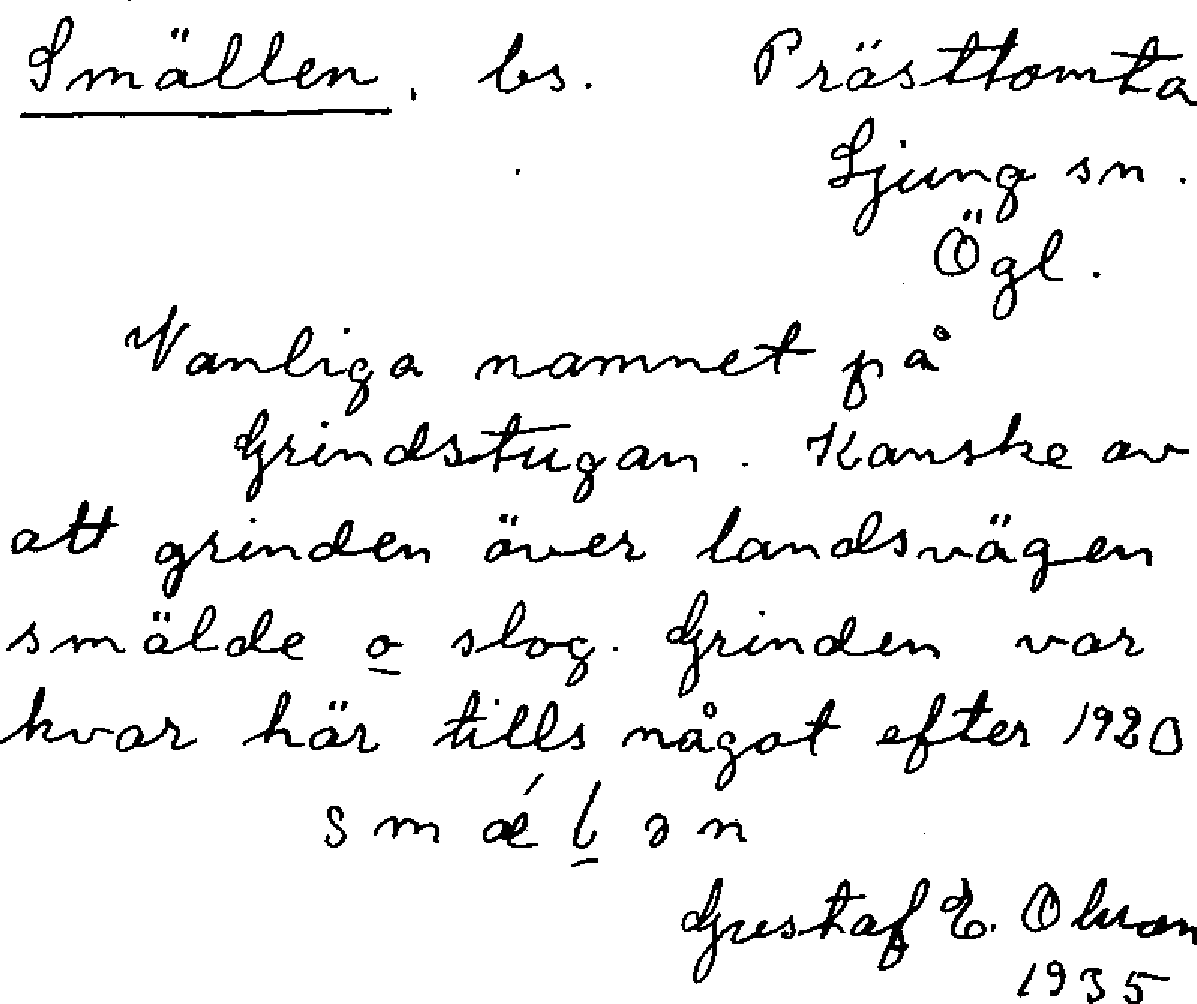 Smällen. bs. Prästtomta
Ljung sn.
Ögl.
Vanliga namnet på
Grindstugan. Kanske av
att grinden över landsvägen
smälde o slog. Grinden var
kvar här tills något efter 1920
smǽlən
Gustaf E. Olsson
1935